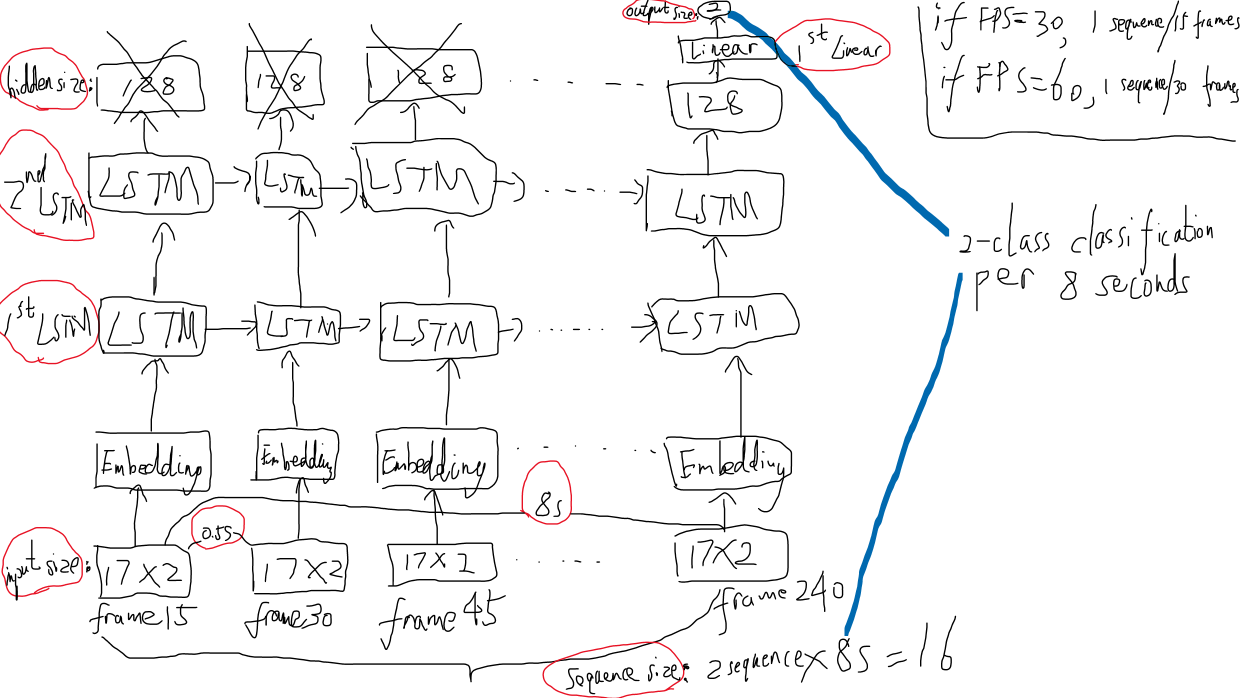 output size: 2
Linear
1st Linear
if FPS=30, 1 sequence/15 frames
if FPS=60, 1 sequence/30 frames
hidden size: 128 128 128 128
2nd LSTM
LSTM LSTM LSTM LSTM
2-class classification
per 8 seconds
1st LSTM
LSTM LSTM LSTM LSTM
Embedding Embedding Embedding Embedding
8s
0.5s
input size: 17X2 17X2 17X2 17X2
frame 15 frame 30 frame 45 frame 240
sequence size: 2 sequence X 8s = 16